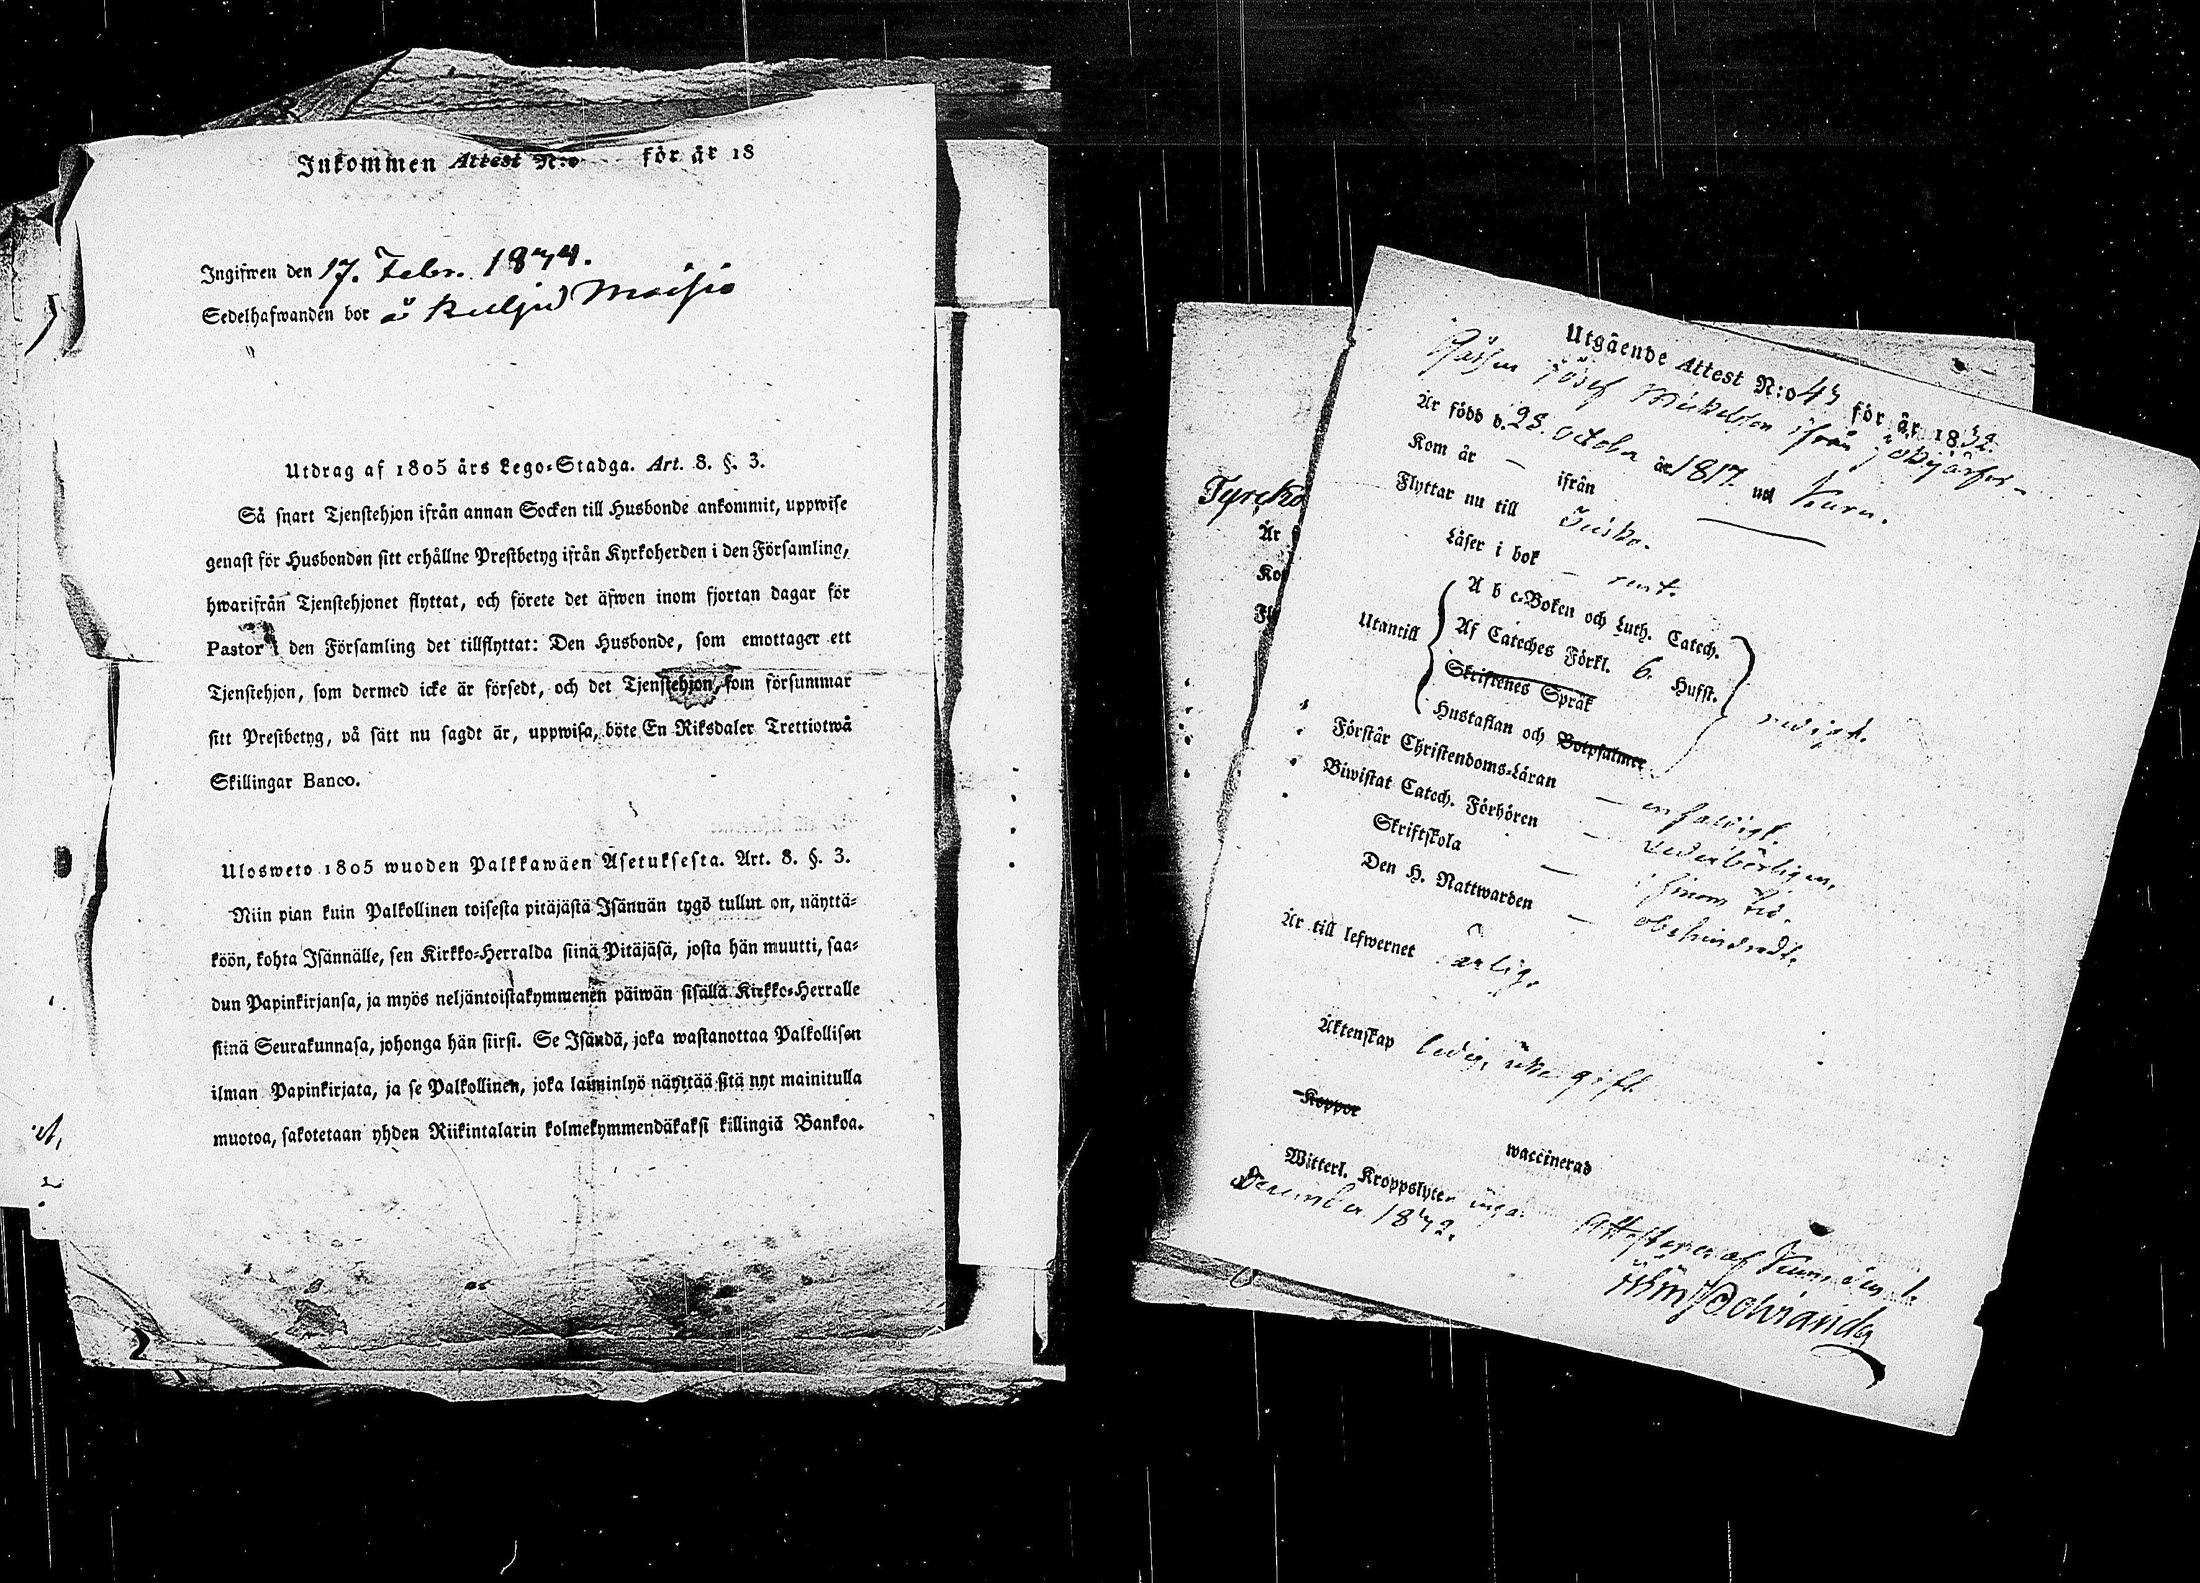 Inkommen Attest N:o för år 18
Ingifwen den 17. Febr. 1844.
Sedelhafwanden bor å Moisio
Utdrag af 1805 års Lego-Stadga. Art. 8. §. 3.
Så snart Tjenstehjon ifrån annan Socken till Husbonde ankommit, uppwise
genast för Husbonden sitt erhållne Prestbetyg ifrån Kyrkoherden i den Församling,
hwarifrån Tjenstehjonet flyttat, och förete det äfwen inom fjortan dagar för
Pastor i den Församling det tillflyttat: Den Husbonde, som emottager ett
Tjenstehjon, som dermed icke är försedt, och det Tjenstehjon, som försummar
sitt Prestbetyg, på sätt nu sagdt är, uppwisa, böte En Riksdaler Trettiotwå
Skillingar Banco.
Ulosweto 1805 wuoden Palkkawäen Asetuksesta. Art. 8. §. 3.
Niin pian kuin Palkollinen toisesta pitäjästä Isännän tygö tullut on, näyttä-
köön, kohta Isännälle, sen Kirkko-Herralda siinä Pitäjäsä, josta hän muutti, saa-
dun Papinkirjansa, ja myös neljäntoistakymmenen päiwän sisällä Kirkko-Herralle
siinä Seurakunnasa, johonga hän siirsi. Se Isändä, joka wastanottaa Palkollisen
ilman Papinkirjata, ja se Palkollinen, joka laiminlyö näyttää sitä nyt mainitulla
muotoa, sakotetaan yhden Riikintalarin kolmekymmendäkaksi killingiä Bankoa.
Tyrckö
Är
Ko
Fly
Utgående Attest N:o 43 för år 1842.
Josef Michelsson ifrån
Är född d. 28. October år 1817. uti Kuru.
Kom år — ifrån —
Flyttar nu till
Läser i bok — rent.
Utantill
A b c-Boken och Luth. Catech.
Af Cateches Förkl. 6. Hufst.
Skriftenes Språk
Hustaflan och Botpsalmer
redigt.
Förstår Christendoms-Läran — enfaldigt.
Biwistat Catech. Förhören — wederbörligen.
Skriftskola — i sinom tid.
Den H. Nattwarden — obehindradt.
Är till lefwernet ärlig.
Äktenskap ledig, icke gift
Koppor waccinerad
Witterl. Kroppslyten inga. Attesterer af Kuru den 1.
December 1842.